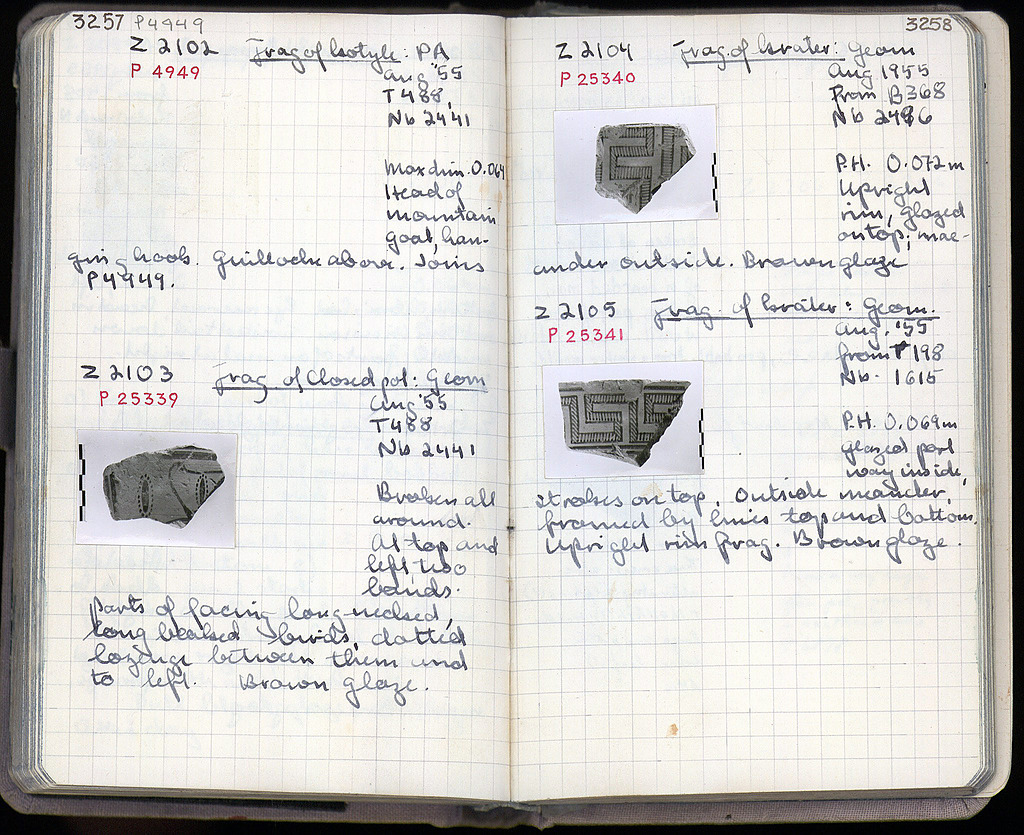 3257 P4949
Z 2102 Frag of kotyle: PA
P 4949
Aug '55
T 488,
Nb 2441
Max dim. 0.064
Head of
mountain
goat, han-
ging hook. Guilloche above. Joins
P4949.
Z 2103 Frag. of Closed pot: Geom
P 25339
Aug '55
T 488
Nb 2441
Broken all
around.
At top and
left two
bands.
Parts of facing long-necked,
long beaked birds, dotted
lozenge between them and
to left. Brown glaze.
3258
Z 2104 Frag. of krater: Geom
P 25340
Aug 1955
From B368
Nb
P.H. 0.072 m
Upright
rim, glazed
on top; mae-
ander outside. Brown glaze
Z 2105 Frag. of krater: Geom.
P 25341
Aug. '55
from T 198
Nb. 1615
P.H. 0.069m
glazed part
way inside,
strokes on top. Outside meander,
framed by lines top and bottom.
Upright rim frag. Brown glaze.